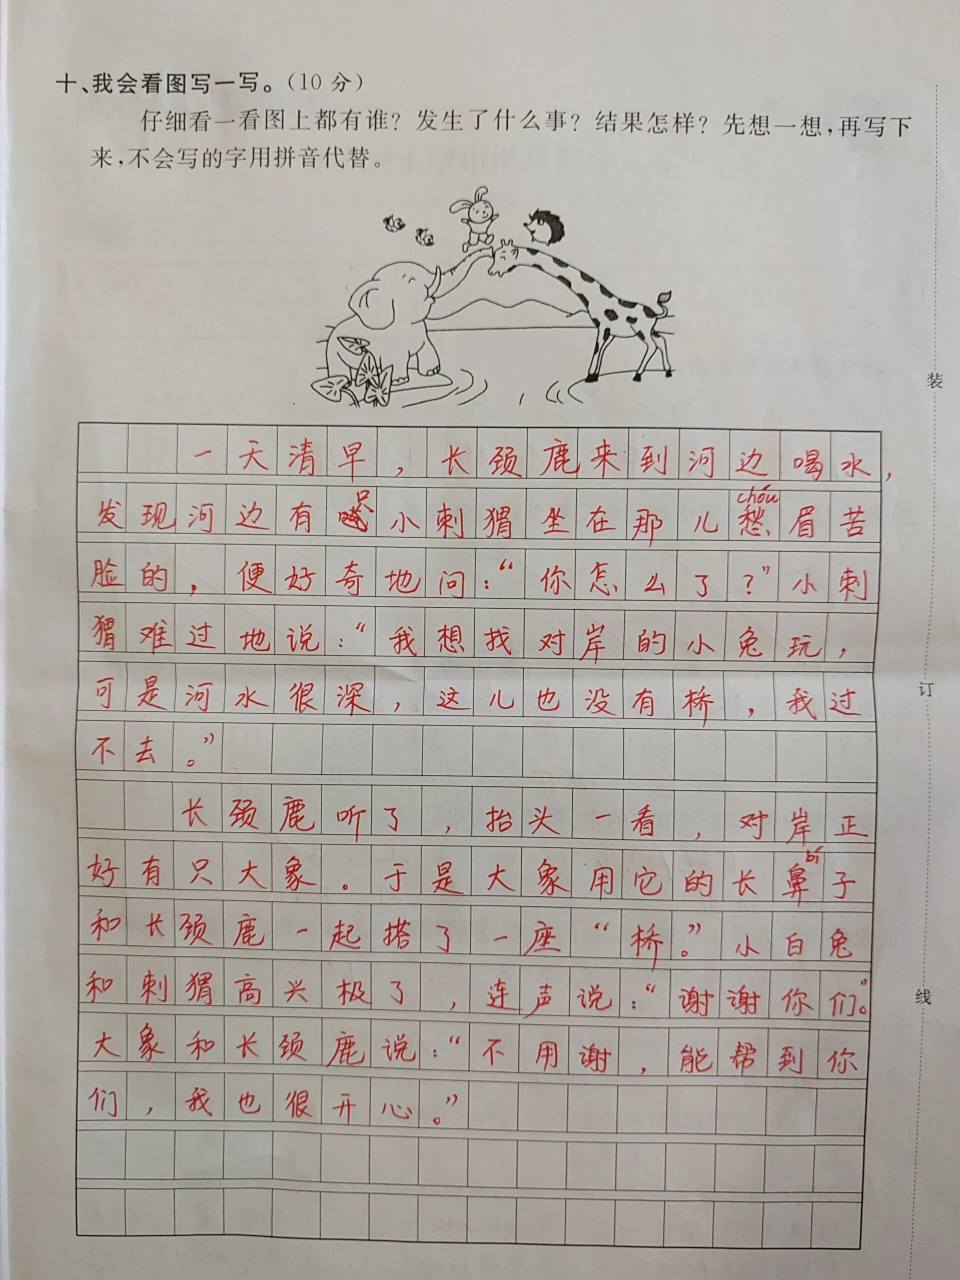 十、我会看图写一写。(10 分)
仔细看一看图上都有谁？发生了什么事？结果怎样？先想一想，再写下
来，不会写的字用拼音代替。
一天清早，长颈鹿来到河边喝水，
chóu
发现河边有只小刺猬坐在那儿愁眉苦
脸的，便好奇地问：“你怎么了？”小刺
猬难过地说：“我想找对岸的小兔玩，
可是河水很深，这儿也没有桥，我过
不去。”
长颈鹿听了，抬头一看，对岸正
bí
好有只大象。于是大象用它的长鼻子
和长颈鹿一起搭了一座“桥。”小白兔
和刺猬高兴极了，连声说：“谢谢你们。”
大象和长颈鹿说：“不用谢，能帮到你
们，我也很开心。”
装
订
线